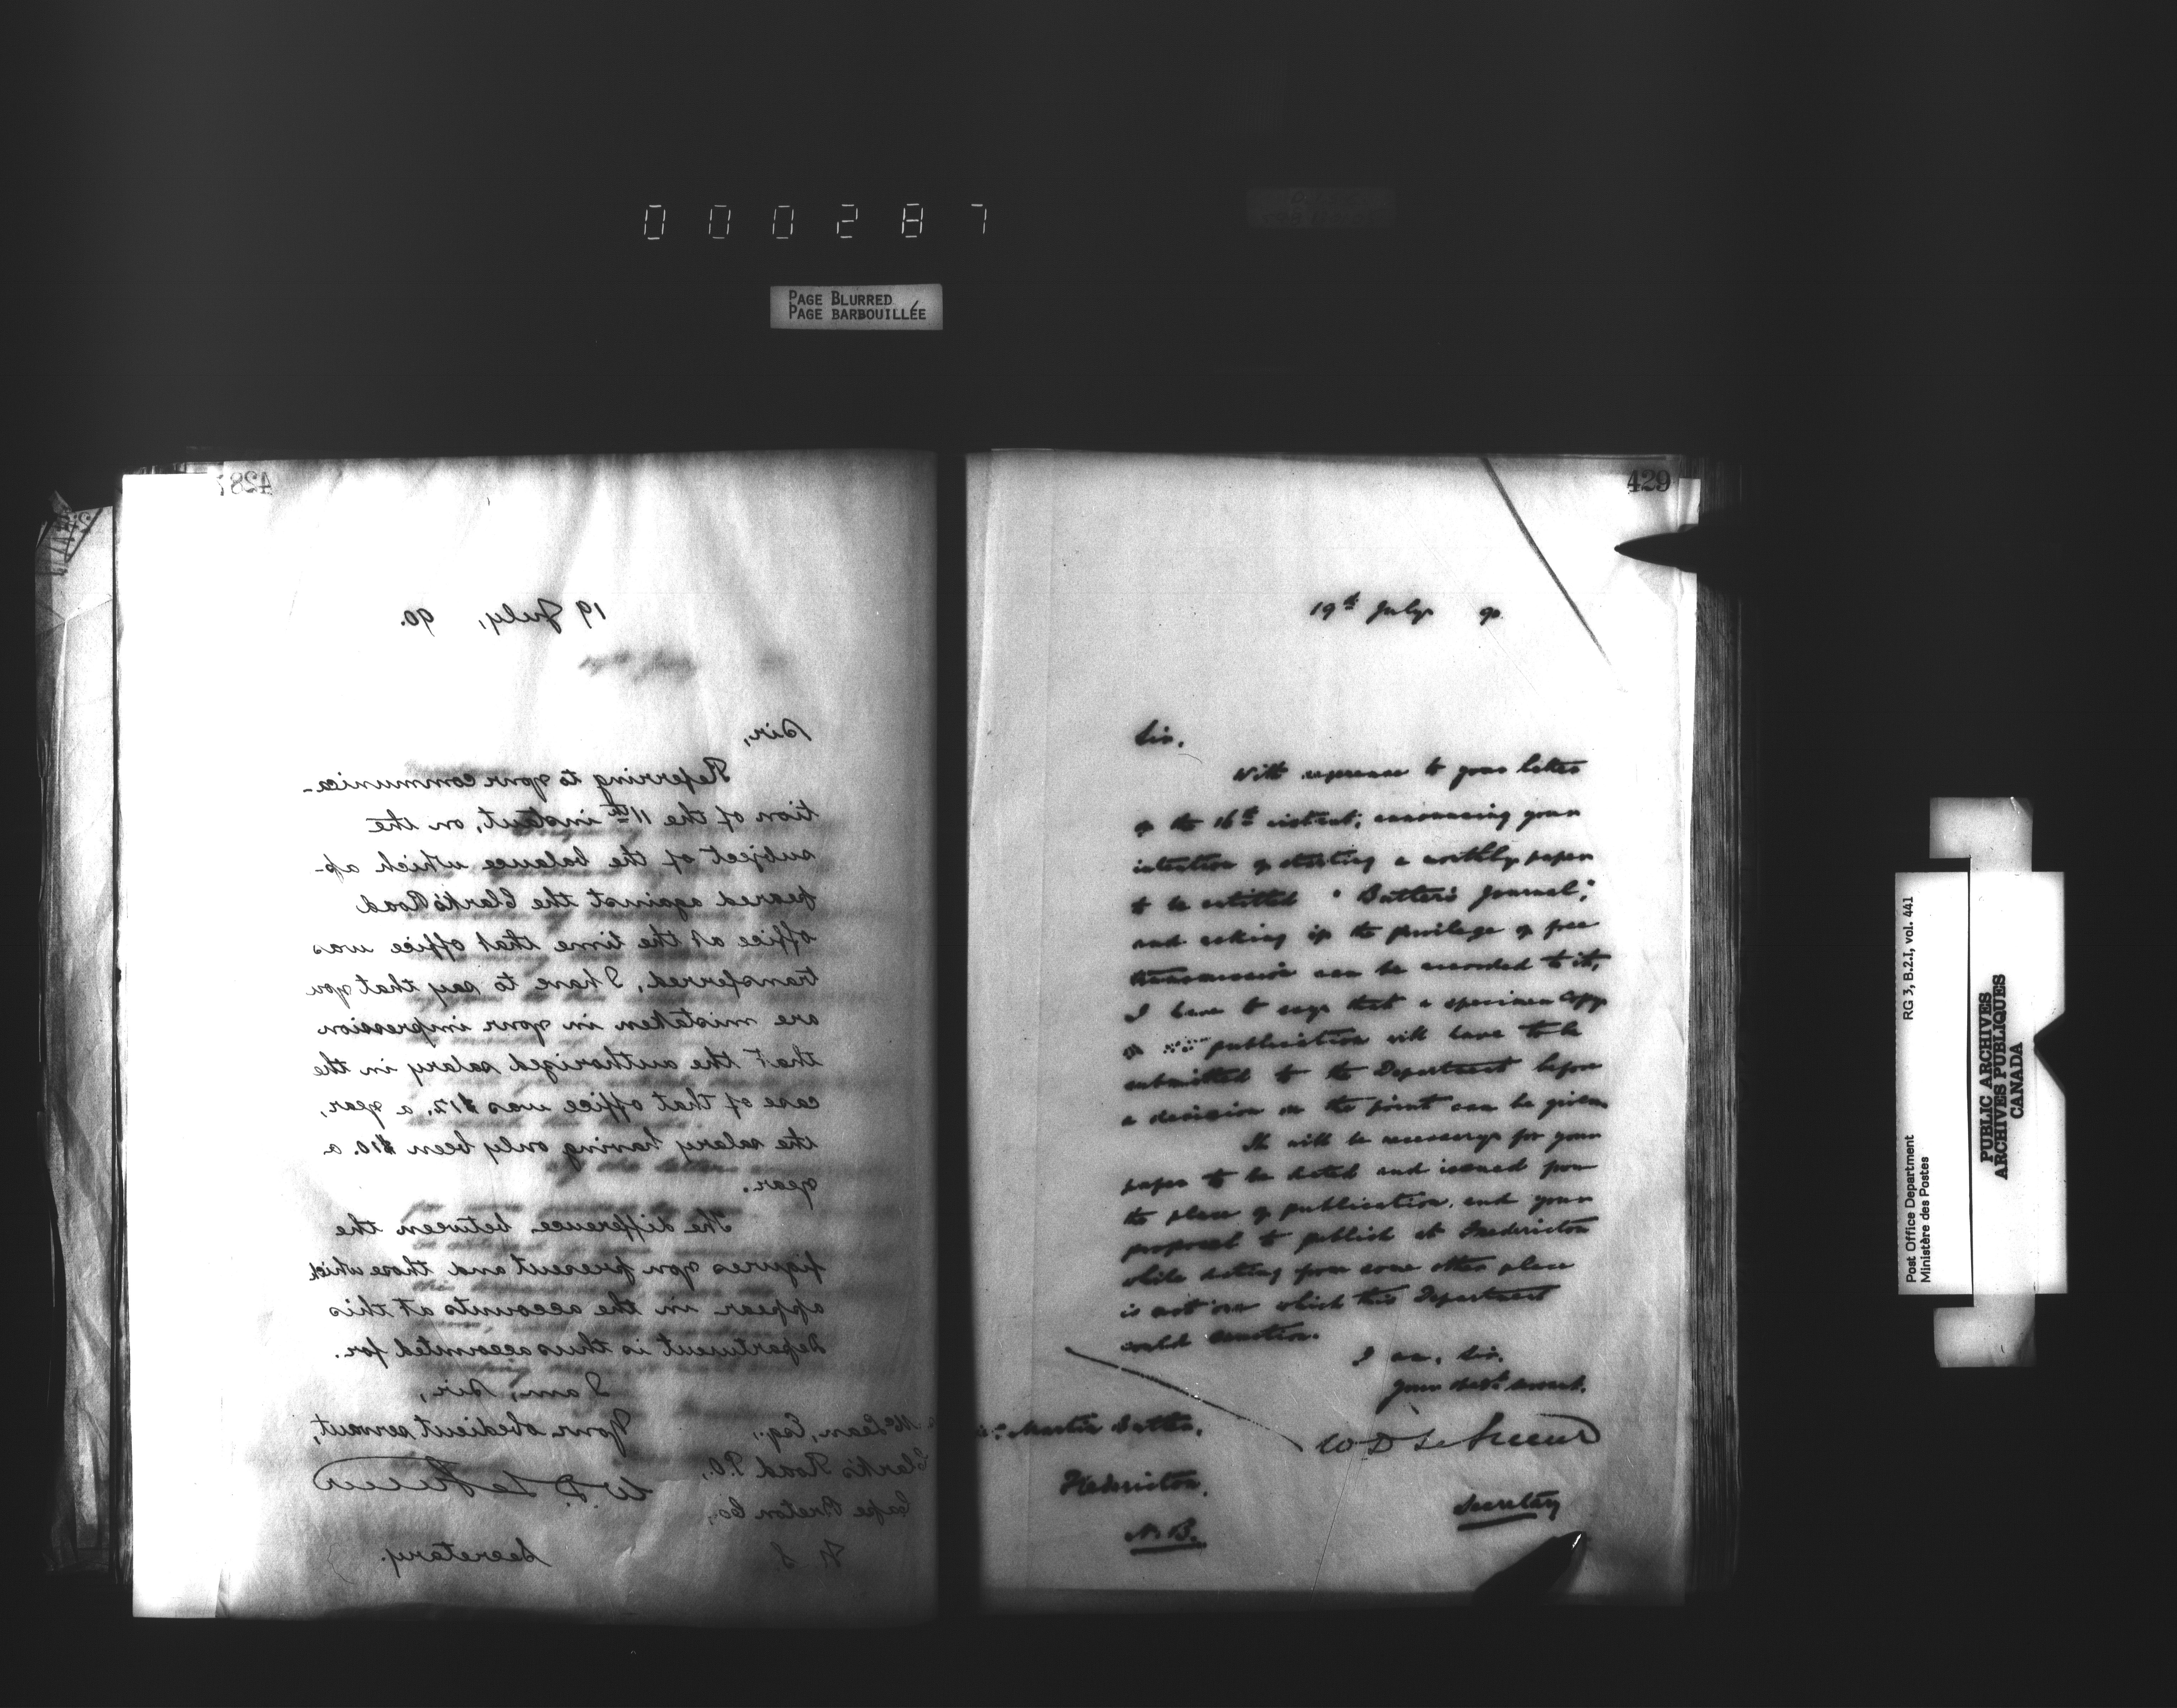 000287
PAGE BLURRED
PAGE BARBOUILLÉE
428
19 July, 90.
Sir,
Referring to your communica-
tion of the 11th instant, on the
subject of the balance which ap-
peared against the Clark's Road
office at the time that office was
transferred, I have to say that you
are mistaken in your impression
that the authorized salary in the
case of that office was $12. a year,
the salary having only been $10. a
year.
The difference between the
figures you present and those which
appear in the accounts at this
Department is thus accounted for.
I am, Sir,
Your obedient servant,
W. D. LeSueur
Secretary.
McLean, Esq.,
Clark's Road P.O.,
Cape Breton Co.,
N. S.
429
19th July 90
Sir,
With reference to your letter
of the 16th instant, announcing your
intention of starting a monthly paper
to be entitled "Butler's Journal,"
and asking if the privilege of free
transmission can be accorded to it,
I have to say that a specimen copy
of publication will have to be
submitted to the Department before
a decision on the point can be given.
It will be necessary for your
paper to be dated and issued from
the place of publication, and your
proposal to publish at Fredericton
while dating from some other place
is not one which this Department
could sanction.
I am, Sir,
Your obedt. servant,
W D LeSueur
Secretary
Martin Butler,
Fredericton,
N.B.
Post Office Department RG 3, B.2.I, vol. 441
Ministère des Postes
PUBLIC ARCHIVES
ARCHIVES PUBLIQUES
CANADA